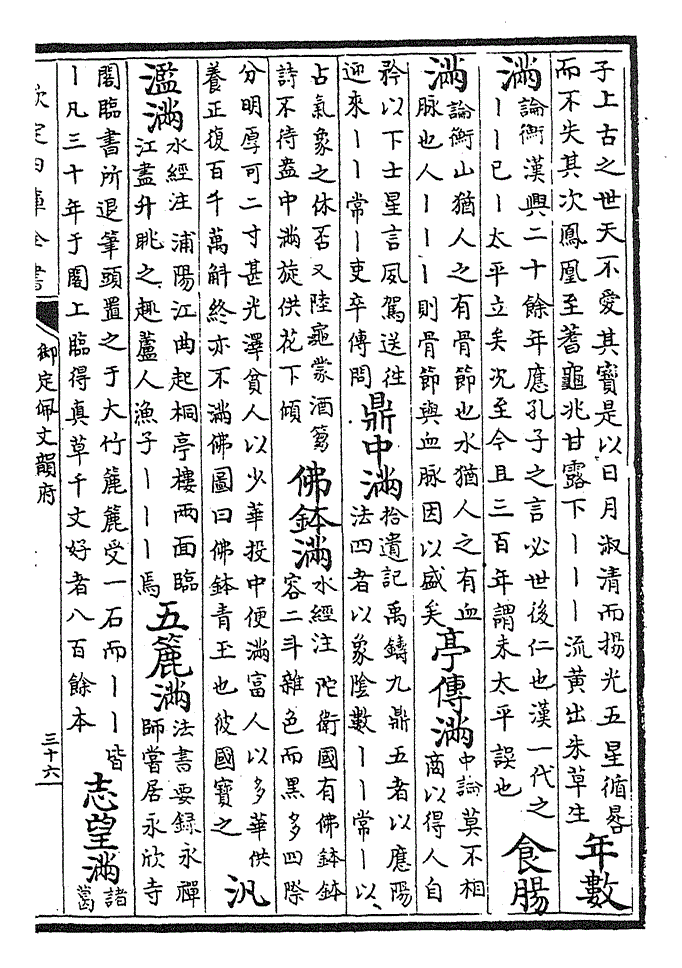 子上古之世天不愛其寶是以日月淑清而揚光五星循晷
而不失其次鳳凰至蓍龜兆甘露下丨丨丨流黄出朱草生
年數
滿
論衡漢興二十餘年應孔子之言必世後仁也漢一代之
丨丨已丨太平立矣况至今且三百年謂未太平誤也
食腸
滿
論衡山猶人之有骨節也水猶人之有血
脉也人丨丨丨則骨節與血脉因以盛矣
亭傳滿
中論莫不相
商以得人自
矜以下士星言夙駕送徃
迎來丨丨常丨吏卒傳問
鼎中滿
拾遺記禹鑄九鼎五者以應陽
法四者以象陰數丨丨常丨以
占氣象之休否又陸龜蒙酒篘
詩不待盎中滿旋供花下傾
佛鉢滿
水經注陀衛國有佛鉢鉢
容二斗雜色而黒多四際
分明厚可二寸甚光澤貧人以少華投中便滿富人以多華供
養正復百千萬斛終亦不滿佛圖曰佛鉢青玉也彼國寶之
汎
濫滿
水經注浦陽江曲起桐亭樓兩面臨
江盡升眺之趣蘆人漁子丨丨丨焉
五簏滿
法書要録永禪
師嘗居永欣寺
閣臨書所退筆頭置之于大竹簏簏受一石而丨丨皆
丨凡三十年于閣上臨得真草千文好者八百餘本
志望滿
諸
葛
欽定四庫全書
御定佩文韻府
三十六